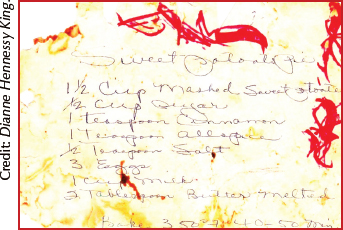 Credit: Dianne Hennessy King.
Sweet Potato Pie
1½ Cup Mashed Sweet
½ Cup Sugar
1 teaspoon Cinnamon
1 teaspoon Allspice
½ teaspoon Salt
3 Eggs
1 Cup milk
2 Tablespoon Butter Melted